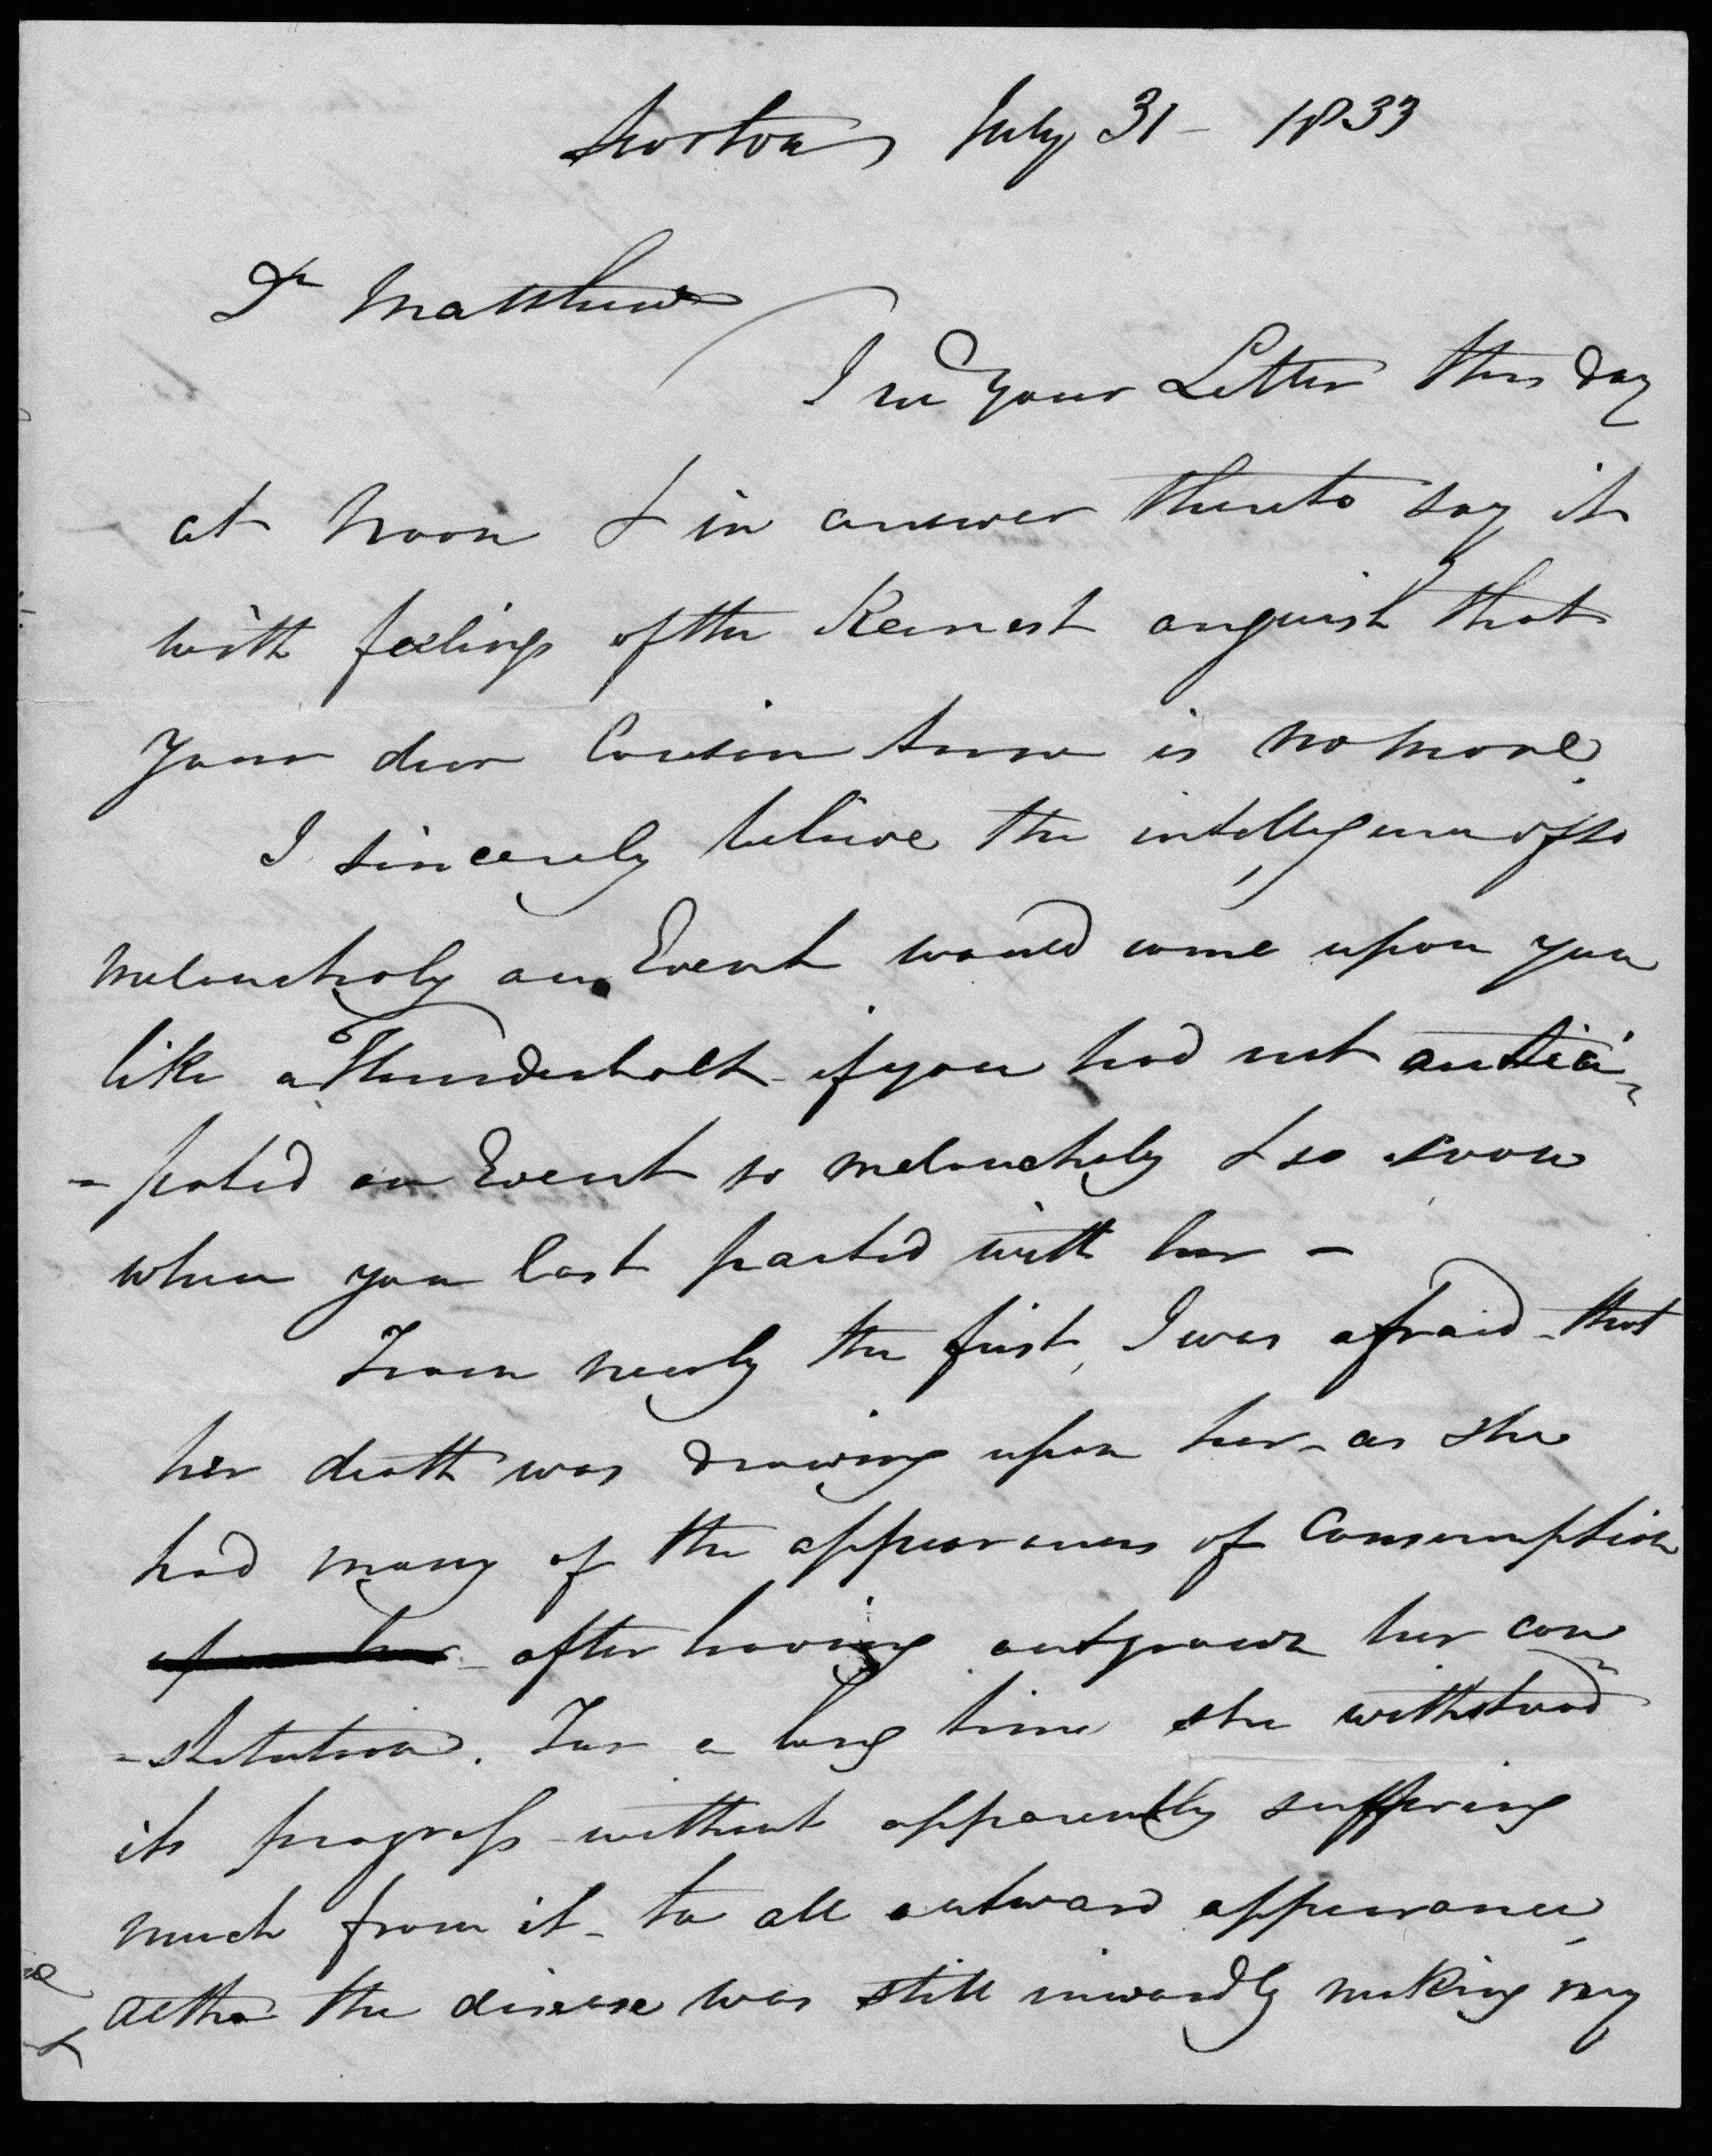 Norton July 31 - 1833
Dr Matthew
I recd your Letter this day
at noon & in answer thereto say it
with feelings of the Keenest anguish that
your dear Cousin Anna is no more.
I sincerely believe the intelligence of so
melancholy an Event would come upon you
like a Thunderbolt - if you had not antici-
-pated an Event so melancholy & so soon
when you last parted with her -
From nearly the first, I was afraid - that
her death was drawing upon her - as she
had many of the appearances of Consumption
upon her - after having outgrown her con-
-stitution. For a long time she withstood
its progress - without apparently suffering
much from it - to all outward appearance,
altho' the disease was still inwardly making